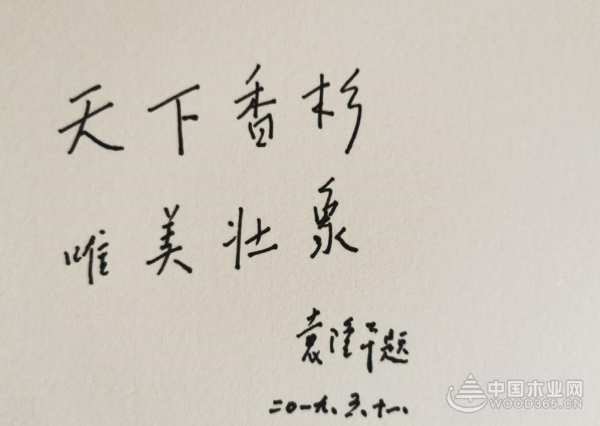 天下香杉
唯美壮泉
袁隆平题
二〇一九、三、十一、
中国木业网
WOOD365.CN